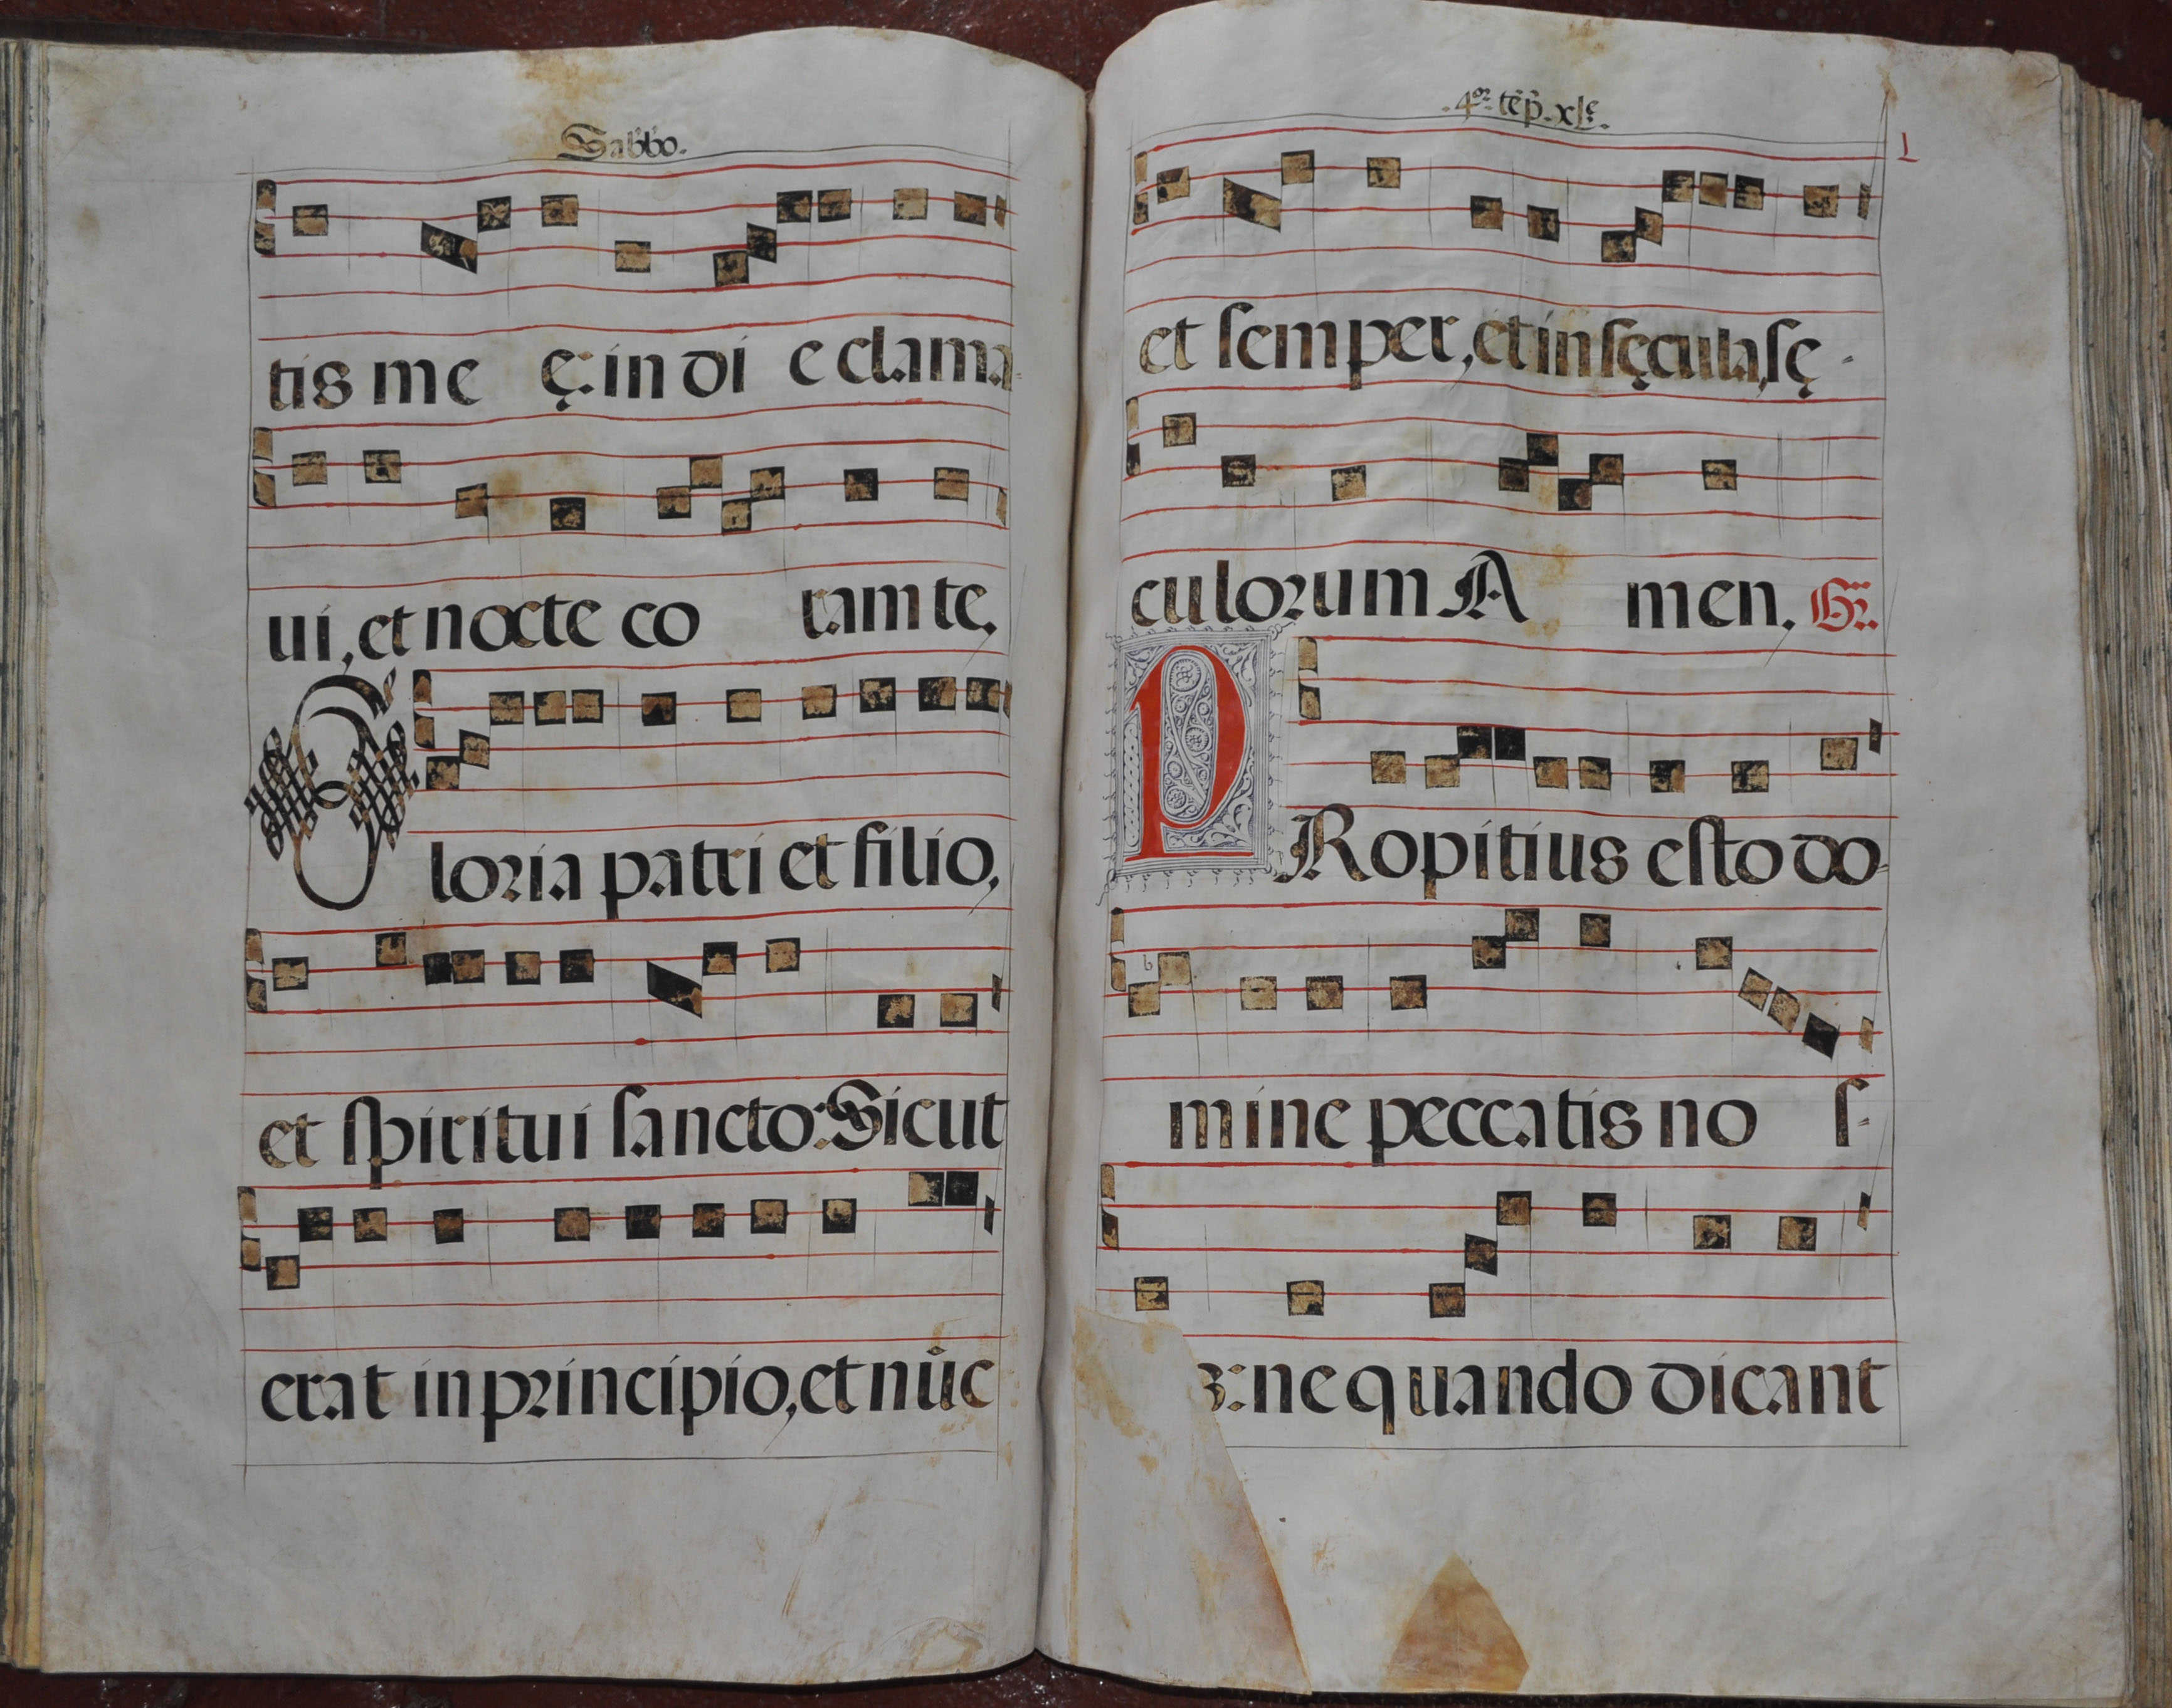 Sabbo.
tis me ę: in di e clama
ui, et nocte co ram te,
Gloria patri et filio,
et spiritui sancto: Sicut
erat in principio, et nũc
.4or. tẽp. xle.
L
et semper, et in sęcula, sę-
culorum A men. Gr.
PRopitius esto do-
mine peccatis no s-
: ne quando dicant